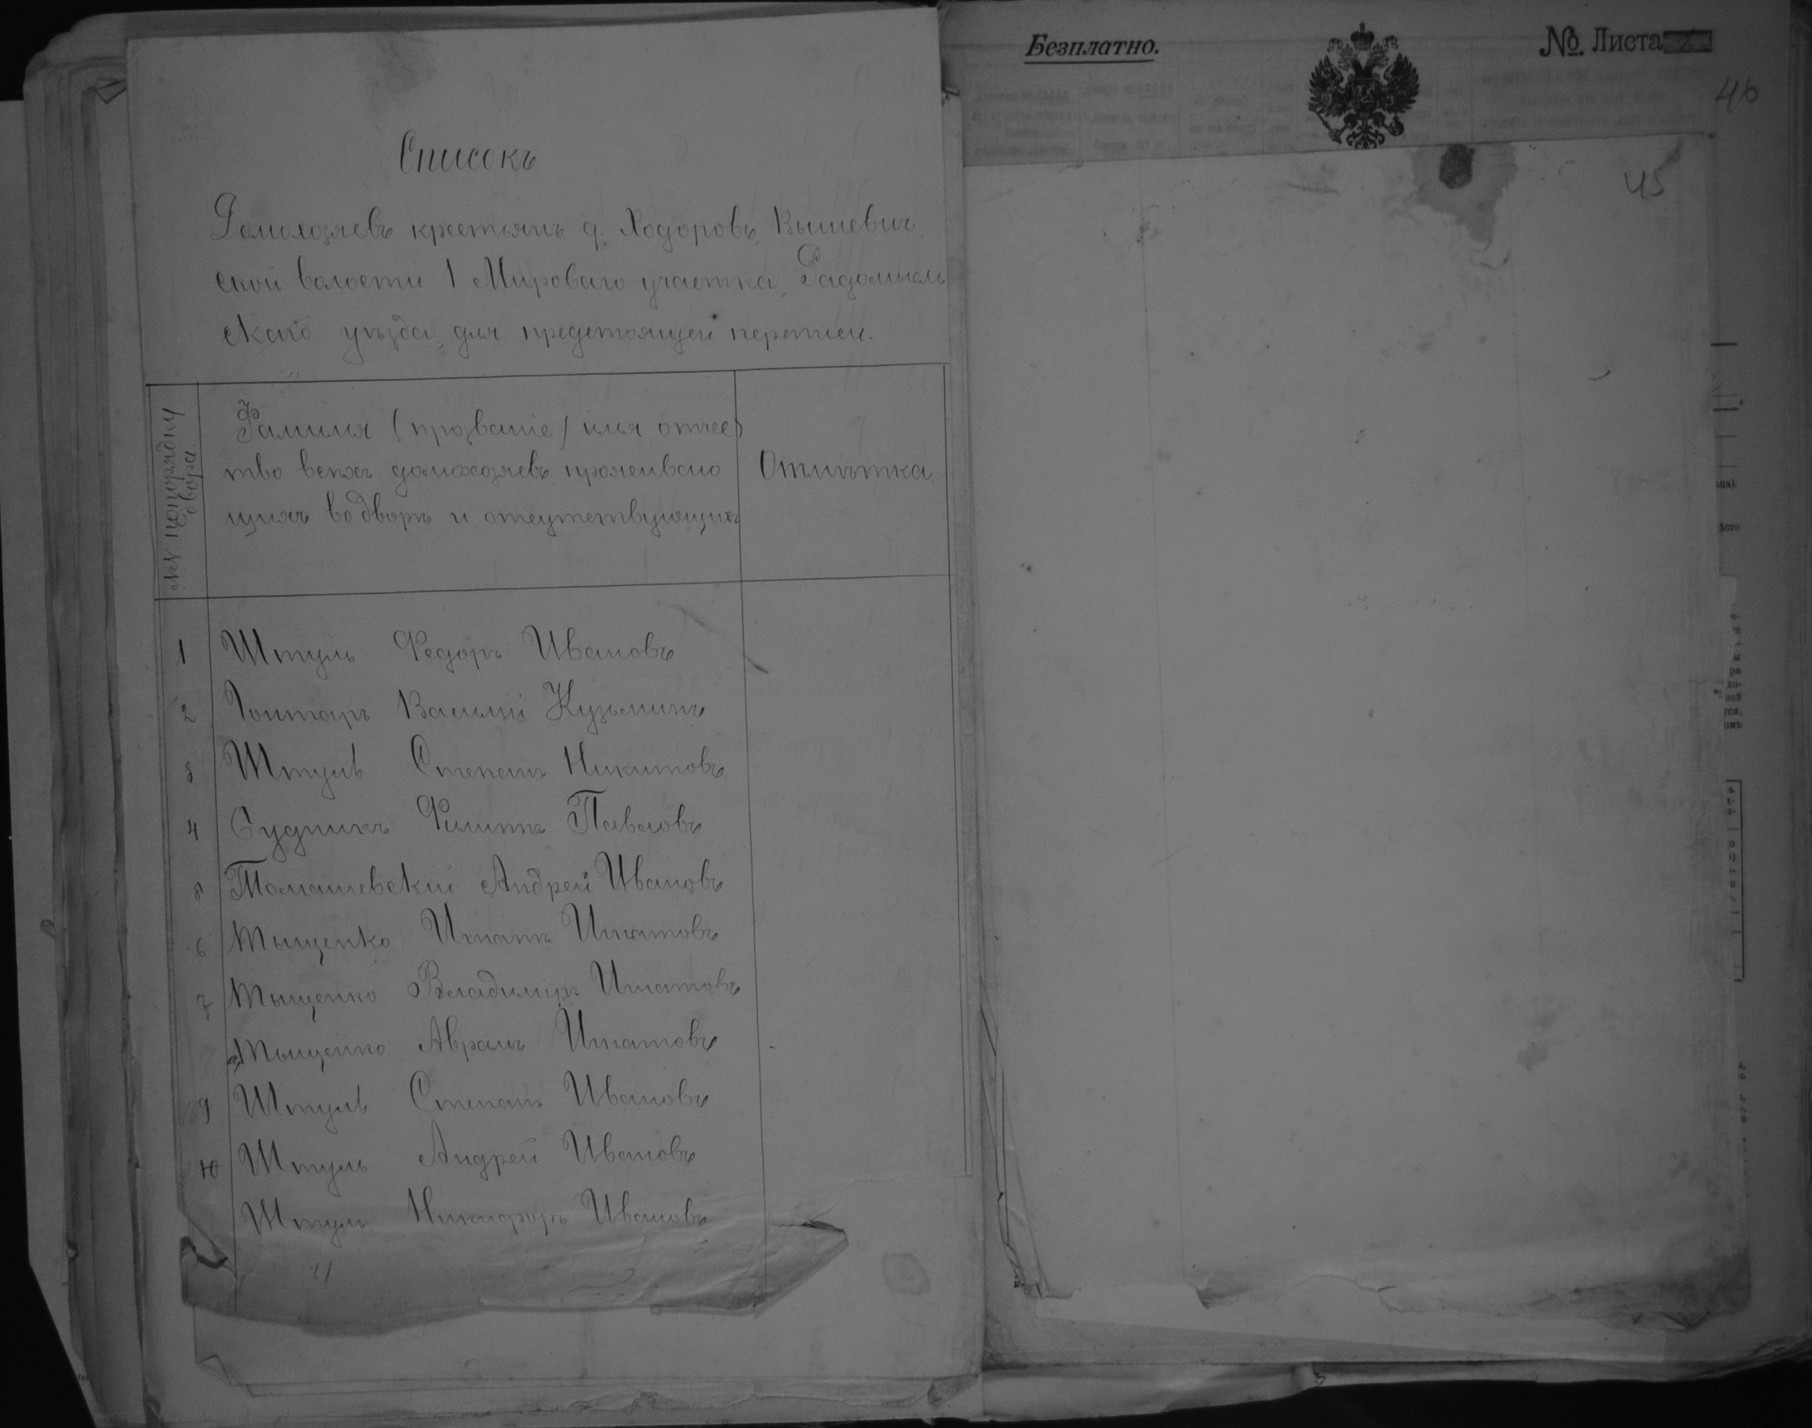 Списокъ
Домохозяевъ крестьянъ д. Ходоровъ, Вышевич
ской волости 1 Мироваго участка, Радомысль
скаго уѣзда, для предстоящей переписи.
№№ попорядку
двора.
Фамилія (прозваніе) имя отчес
тво всѣхъ домохозяевъ проживаю
щихъ во дворѣ и отсутствующихъ
Отмѣтка
1 Штуль Федоръ Ивановъ
2 Гонтаръ Василій Кузьминъ
3 Штуль Степанъ Никитовъ
4 Судникъ Филипъ Павловъ
5 Томашевскій Андрей Ивановъ
6 Тыщенко Игнатъ Игнатовъ
7 Тыщенко Владиміръ Игнатовъ
Тыщенко Аврамъ Игнатовъ
9 Штуль Степанъ Ивановъ
10 Штуль Андрей Ивановъ
Штуль Никифоръ Ивановъ
Безплатно.
№. Листа
46
45